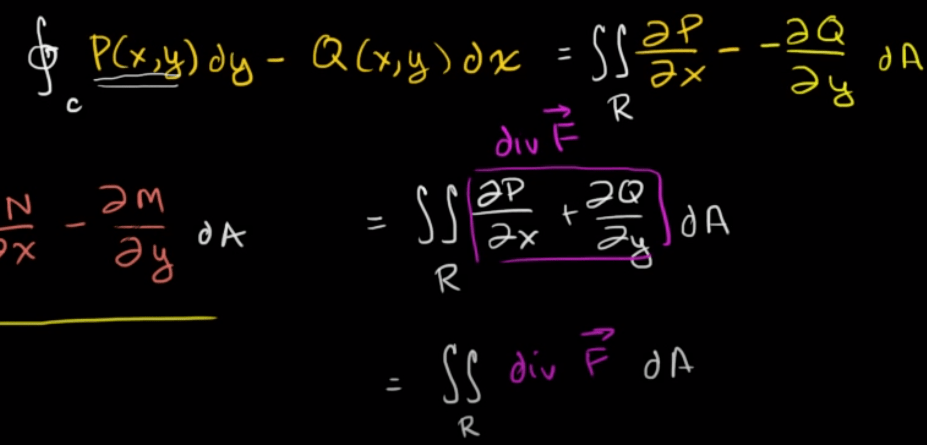 ∮_C P(x,y)dy - Q(x,y)dx = ∬_R ∂P/∂x - -∂Q/∂y dA
div F⃗
N/∂x - ∂M/∂y dA = ∬_R ∂P/∂x + ∂Q/∂y dA
= ∬_R div F⃗ dA